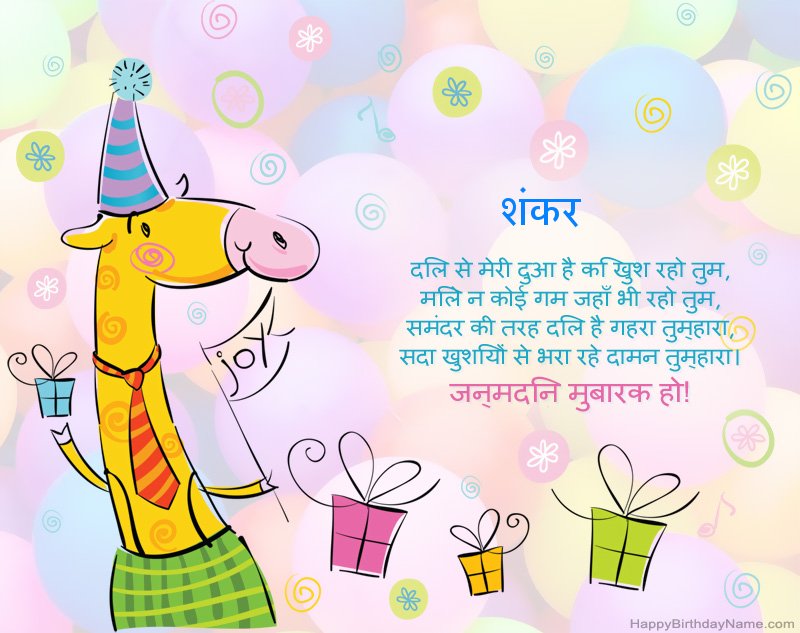 शंकर
दिल से मेरी दुआ है कि खुश रहो तुम,
मिले न कोई गम जहाँ भी रहो तुम,
समंदर की तरह दिल है गहरा तुम्हारा,
सदा खुशियों से भरा रहे दामन तुम्हारा।
जन्मदिन मुबारक हो!
joy
HappyBirthdayName.com